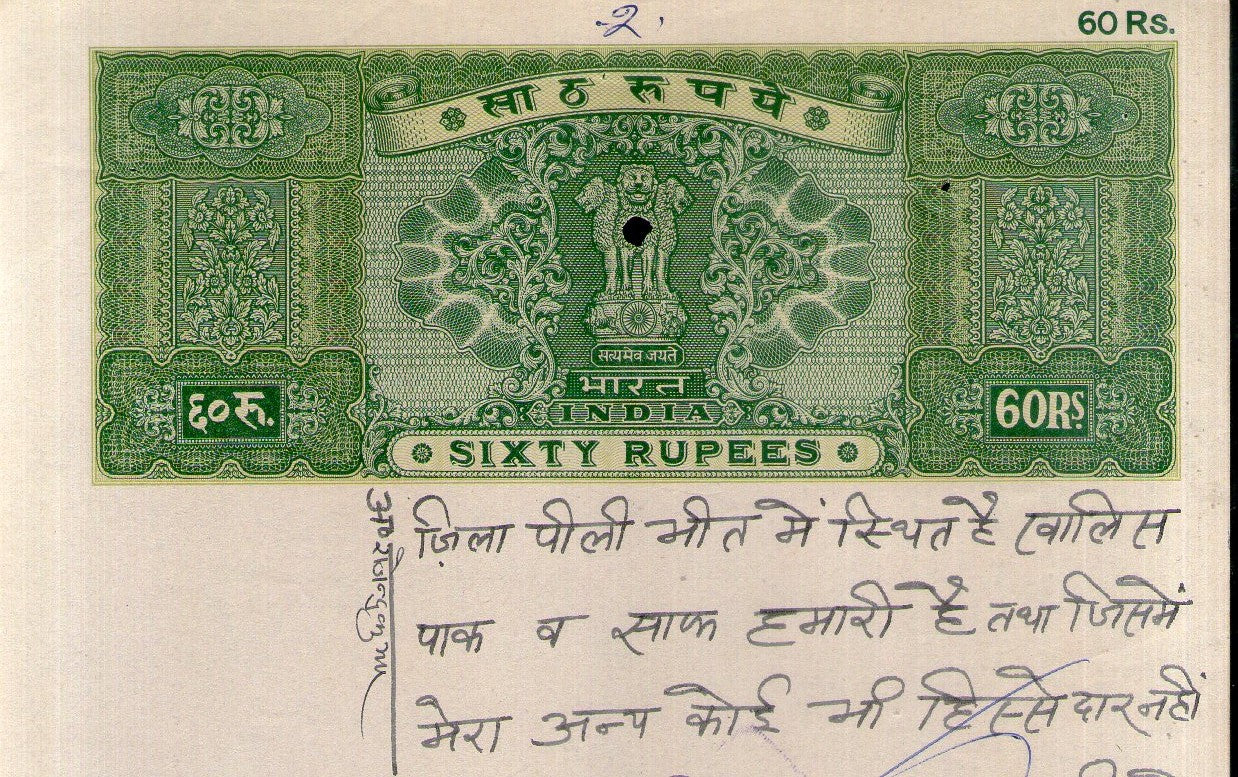 -२.
60 Rs.
साठ रुपये
सत्यमेव जयते
भारत
INDIA
६० रू.
60 RS.
SIXTY RUPEES
ज़िला पीलीभीत में स्थित है खालिस
पाक व साफ हमारी है तथा जिसमें
मेरा अन्य कोई भी हिस्सेदार नहीं